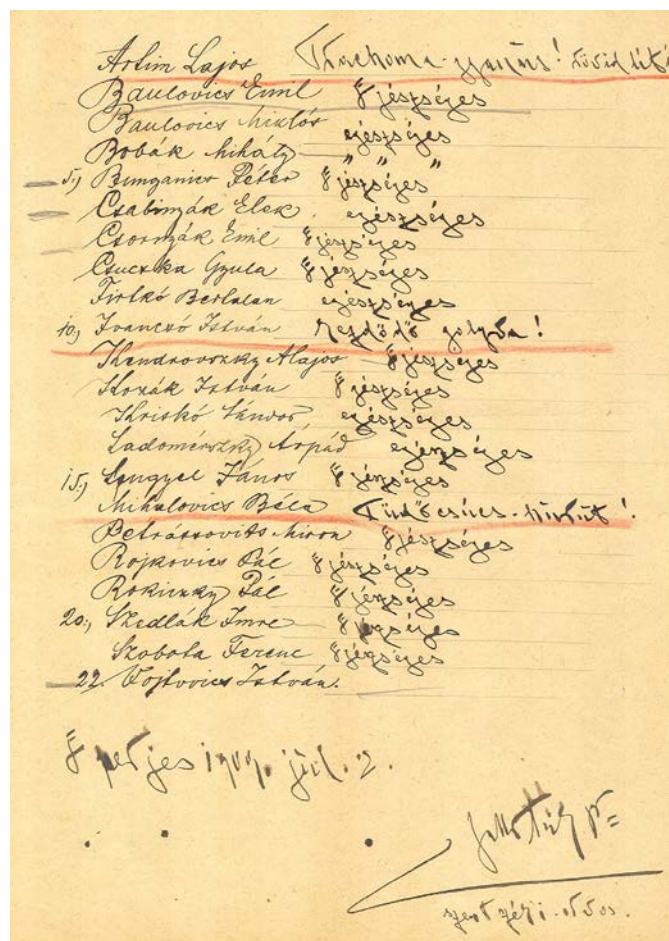 Artim Lajos Trachoma gyanus! rövid lát
Baulovics Emil Egészséges
Baulovics Miklós egészséges
Bobák Mihály " " "
5., Bunganics Péter Egészséges
Csabinyák Elek egészséges
Csornyák Emil Egészséges
Csuczka Gyula Egészséges
Firkó Bertalan egészséges
10., Ivanczó István Kezdődő golyva!
Kendrovszky Alajos Egészséges
Kozák István Egészséges
Kriskó Sándor egészséges
Ladomérszky Árpád egészséges
15., Lengyel János Egészséges
Mihalovics Béla Tüdőcsúcs-hurut!
Petrássovits Miron Egészséges
Rojkovics Pál Egészséges
Rokiczky Pál Egészséges
20., Szedlák Imre Egészséges
Szobota Ferenc Egészséges
22. Vojtovics István.
Eperjes 1909. júl. 2.